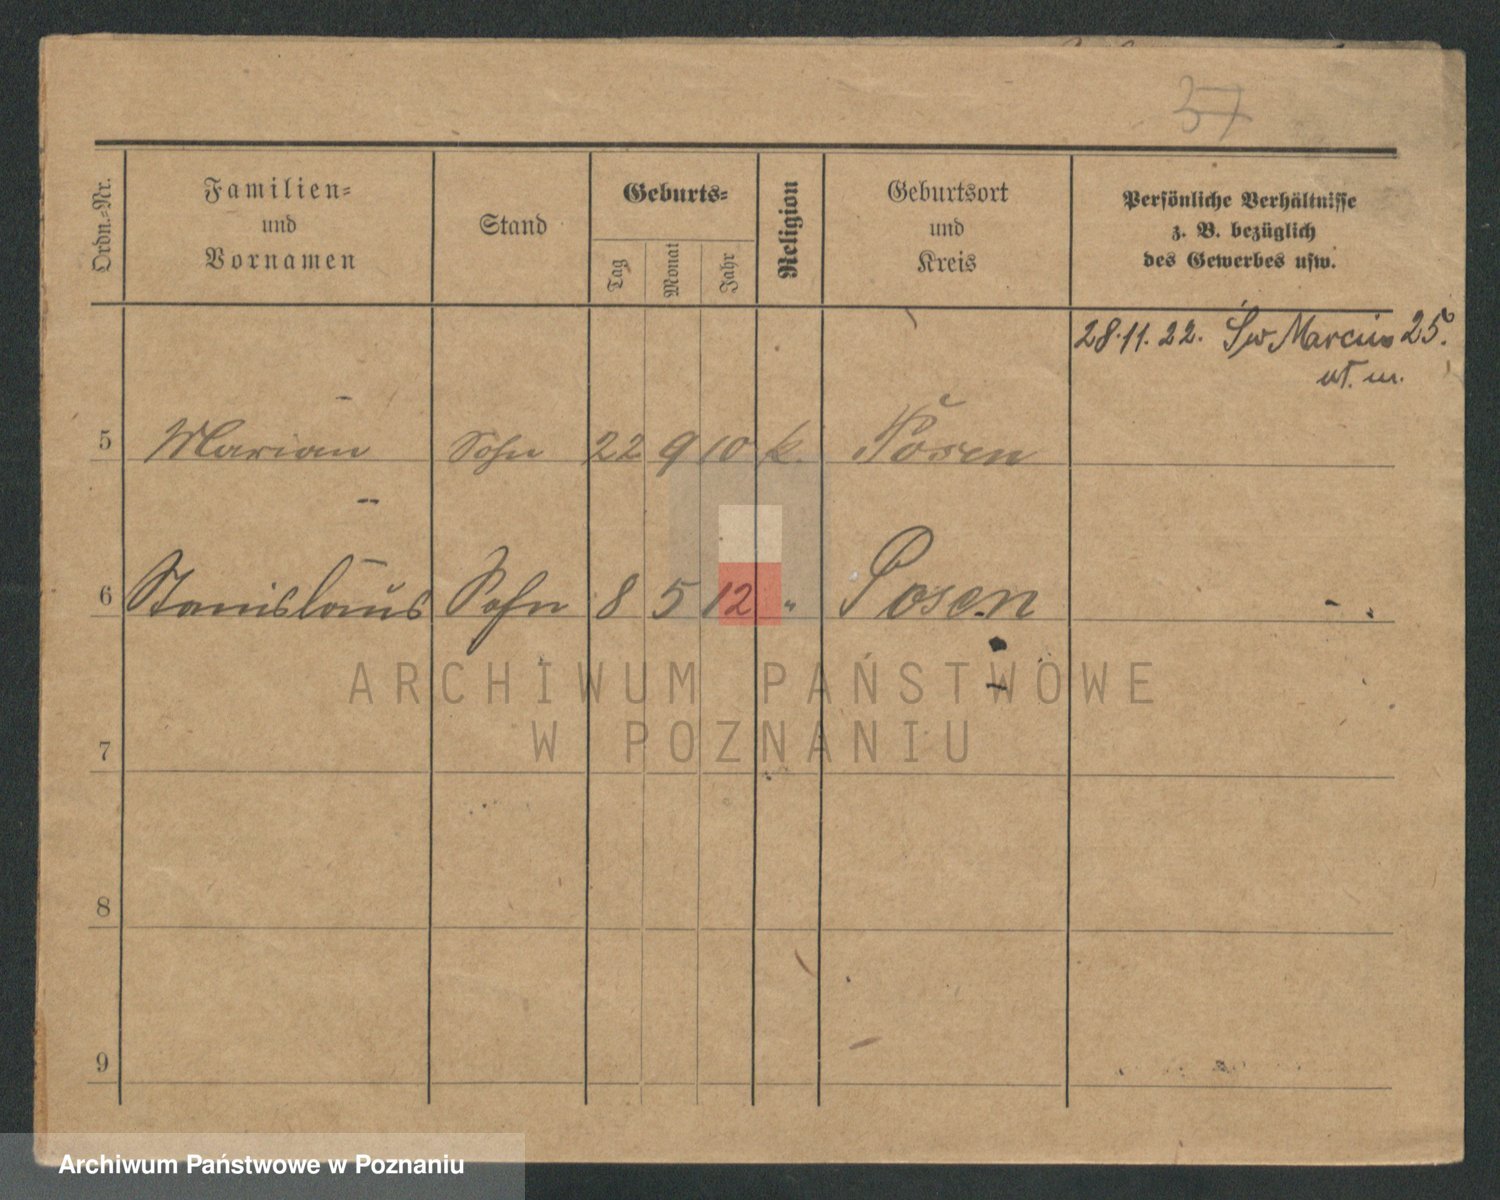 37
Ordn.-Nr.
Familien-
und
Vornamen
Stand
Geburts-
Tag
Monat
Jahr
Religion
Geburtsort
und
Kreis
Persönliche Verhältnisse
z. B. bezüglich
des Gewerbes usw.
28.11.22. Św Marcin 25.
wł. m.
5 Marian Sohn 22 9 10 k. Posen
6 Stanislaus Sohn 8 5 12 " Posen
ARCHIWUM PAŃSTWOWE
W POZNANIU
7
8
9
Archiwum Państwowe w Poznaniu